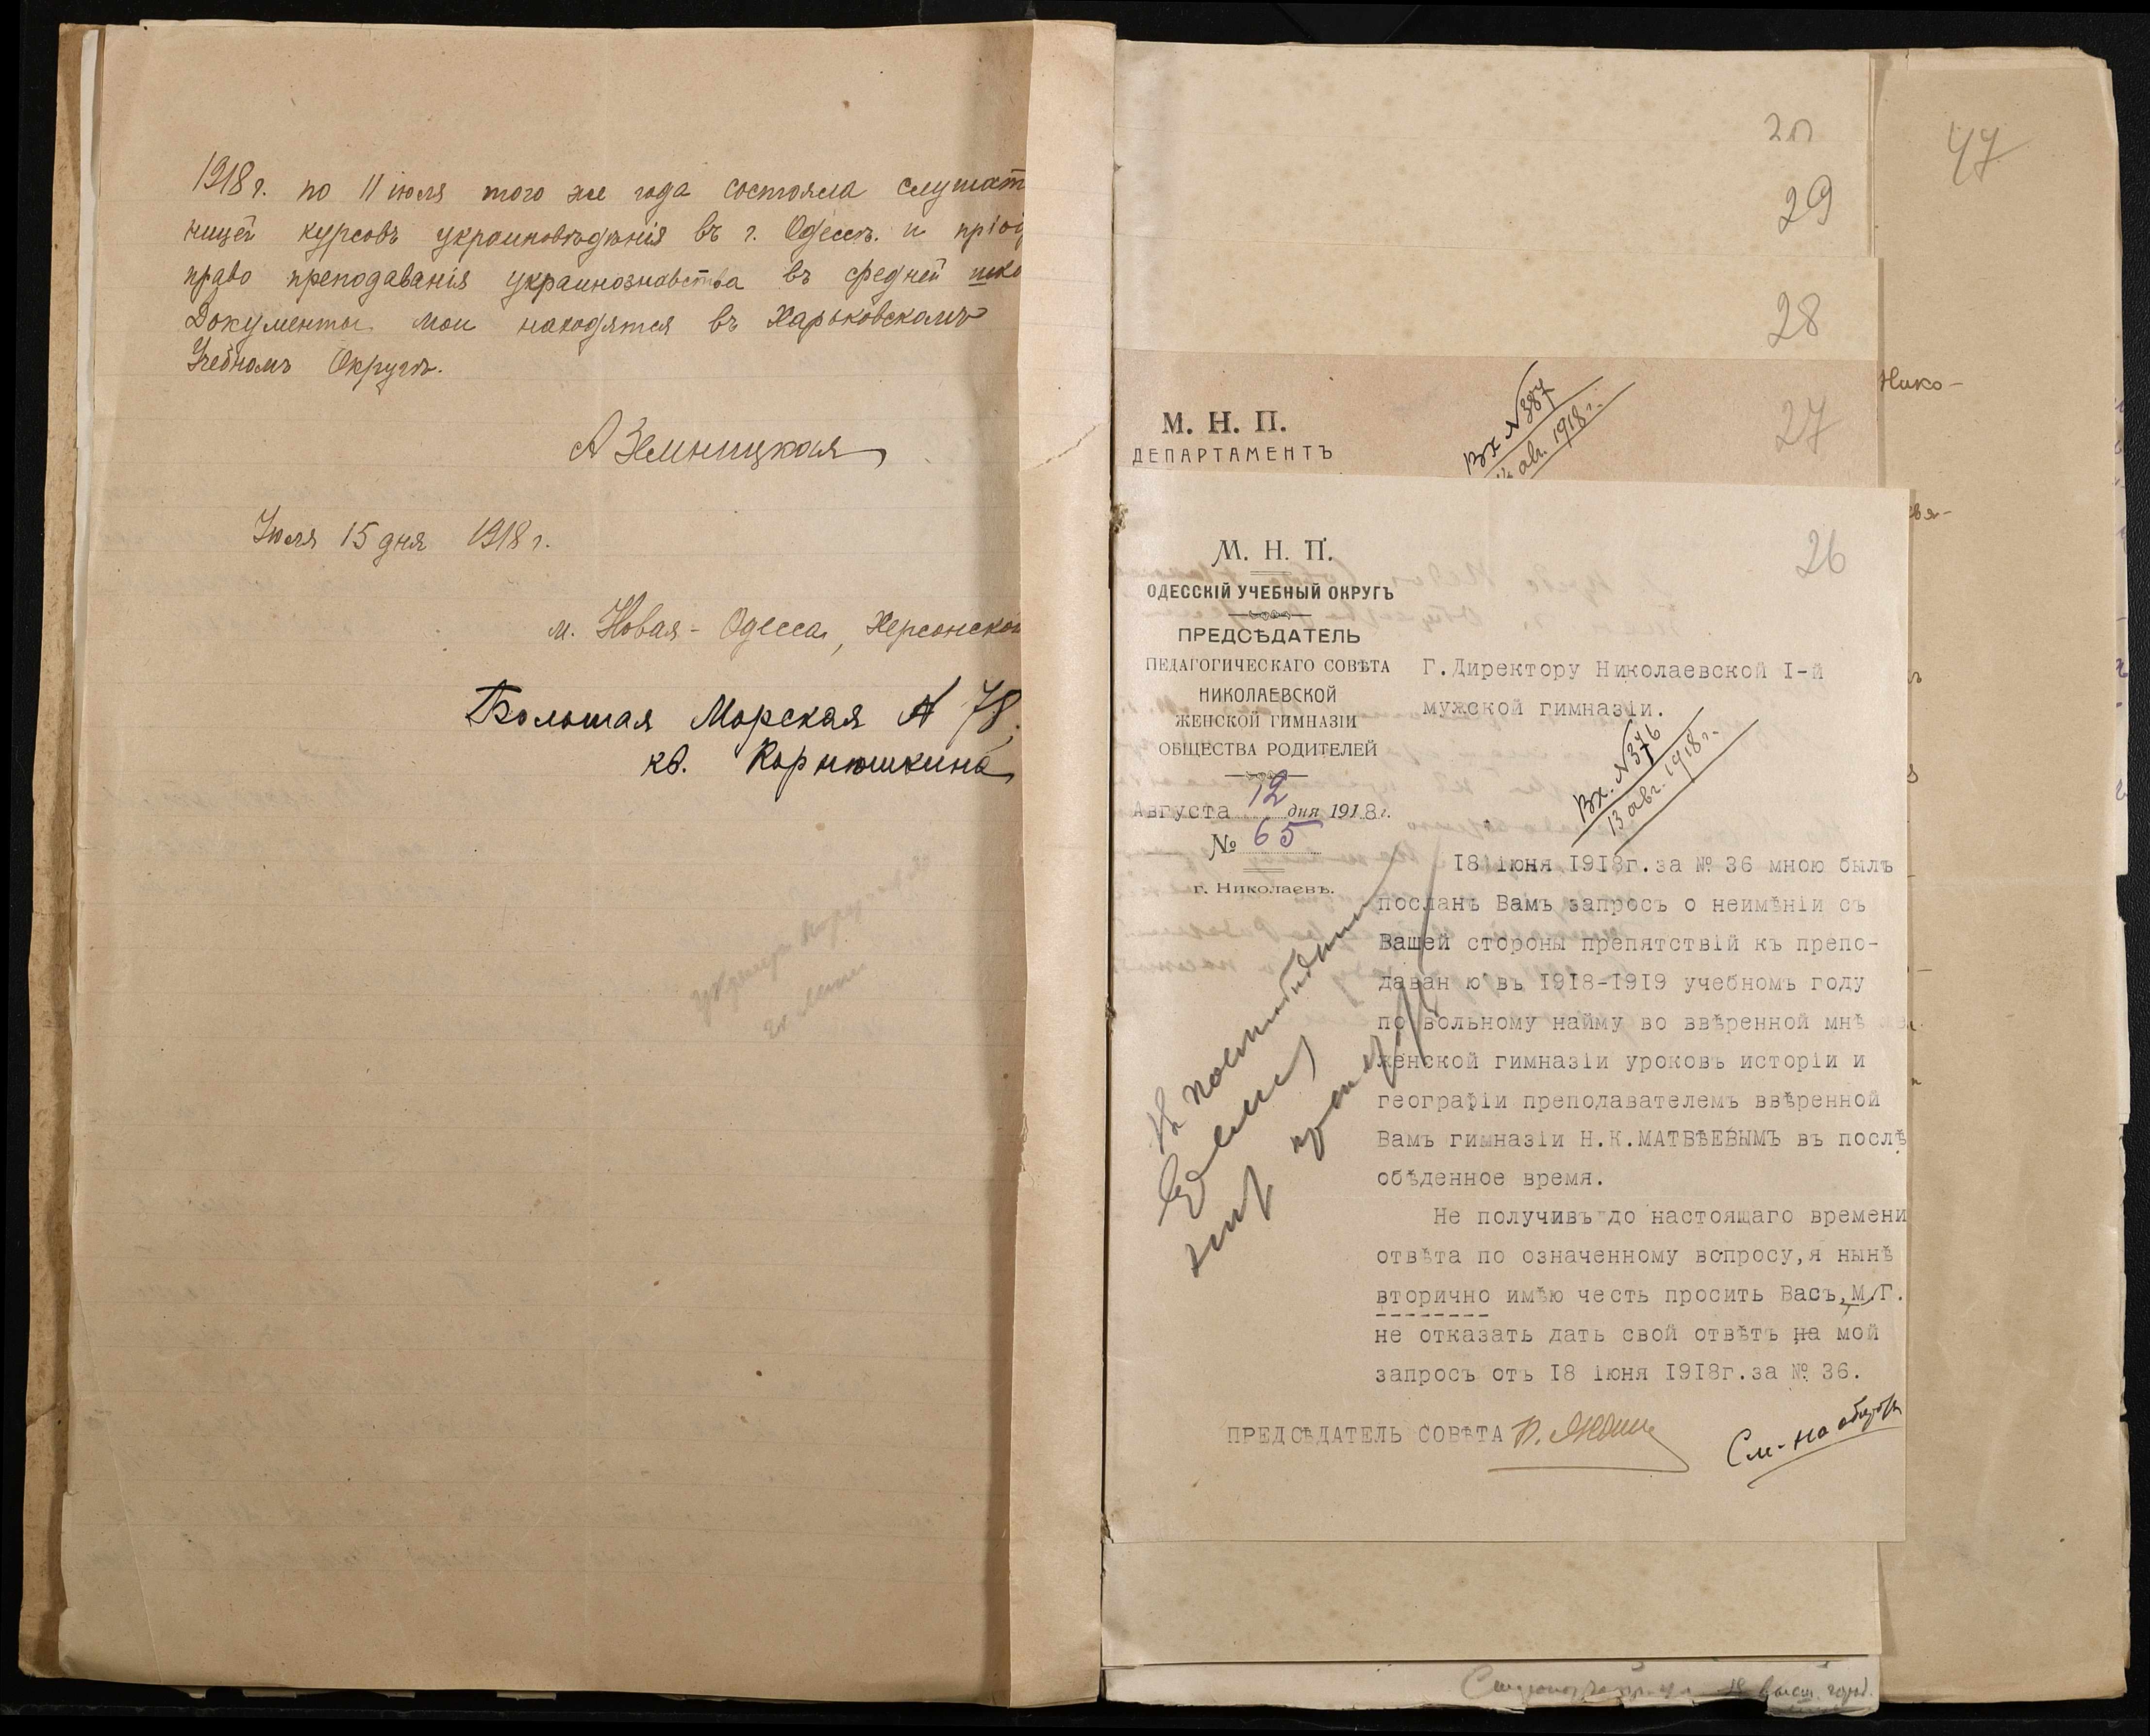 1918 г. по 11 июля того же года состояла слушат
ницей курсовъ украиновѣдѣнія въ г. Одессѣ. и пріо
право преподаванія украинознавства въ средней шко
Документы мои находятся въ Харьковскомъ
Учебномъ Округѣ.
Іюля 15 дня 1918 г.
м. Новая-Одесса, Херсонской
Большая Морская № 78,
кв. Корнюшкина
29
28
27
М. Н. П.
ДЕПАРТАМЕНТЪ
Вх № 387
авг. 1918 г.
47
Нико-
26
М. Н. П.
ОДЕССКІЙ УЧЕБНЫЙ ОКРУГЪ
ПРЕДСѢДАТЕЛЬ
ПЕДАГОГИЧЕСКАГО СОВѢТА
НИКОЛАЕВСКОЙ
ЖЕНСКОЙ ГИМНАЗІИ
ОБЩЕСТВА РОДИТЕЛЕЙ
Августа 12 дня 1918 г.
№ 65
г. Николаевъ.
Г.Директору Николаевской I-й
мужской гимназіи.
Вх. № 376
13 авг. 1918 г.
18 іюня 1918г.за № 36 мною былъ
посланъ Вамъ запросъ о неимѣніи съ
Вашей стороны препятствій къ препо-
даван ю въ 1918-1919 учебномъ году
по вольному найму во ввѣренной мнѣ
женской гимназіи уроковъ исторіи и
географіи преподавателемъ ввѣренной
Вамъ гимназіи Н.К.МАТВѢЕВЫМЪ въ послѣ
обѣденное время.
Не получивъ до настоящаго времени
отвѣта по означенному вопросу,я нынѣ
вторично имѣю честь просить Васъ,М.Г.
не отказать дать свой отвѣтъ на мой
запросъ отъ 18 іюня 1918г.за № 36.
ПРЕДСѢДАТЕЛЬ СОВѢТА
См. на оборотѣ